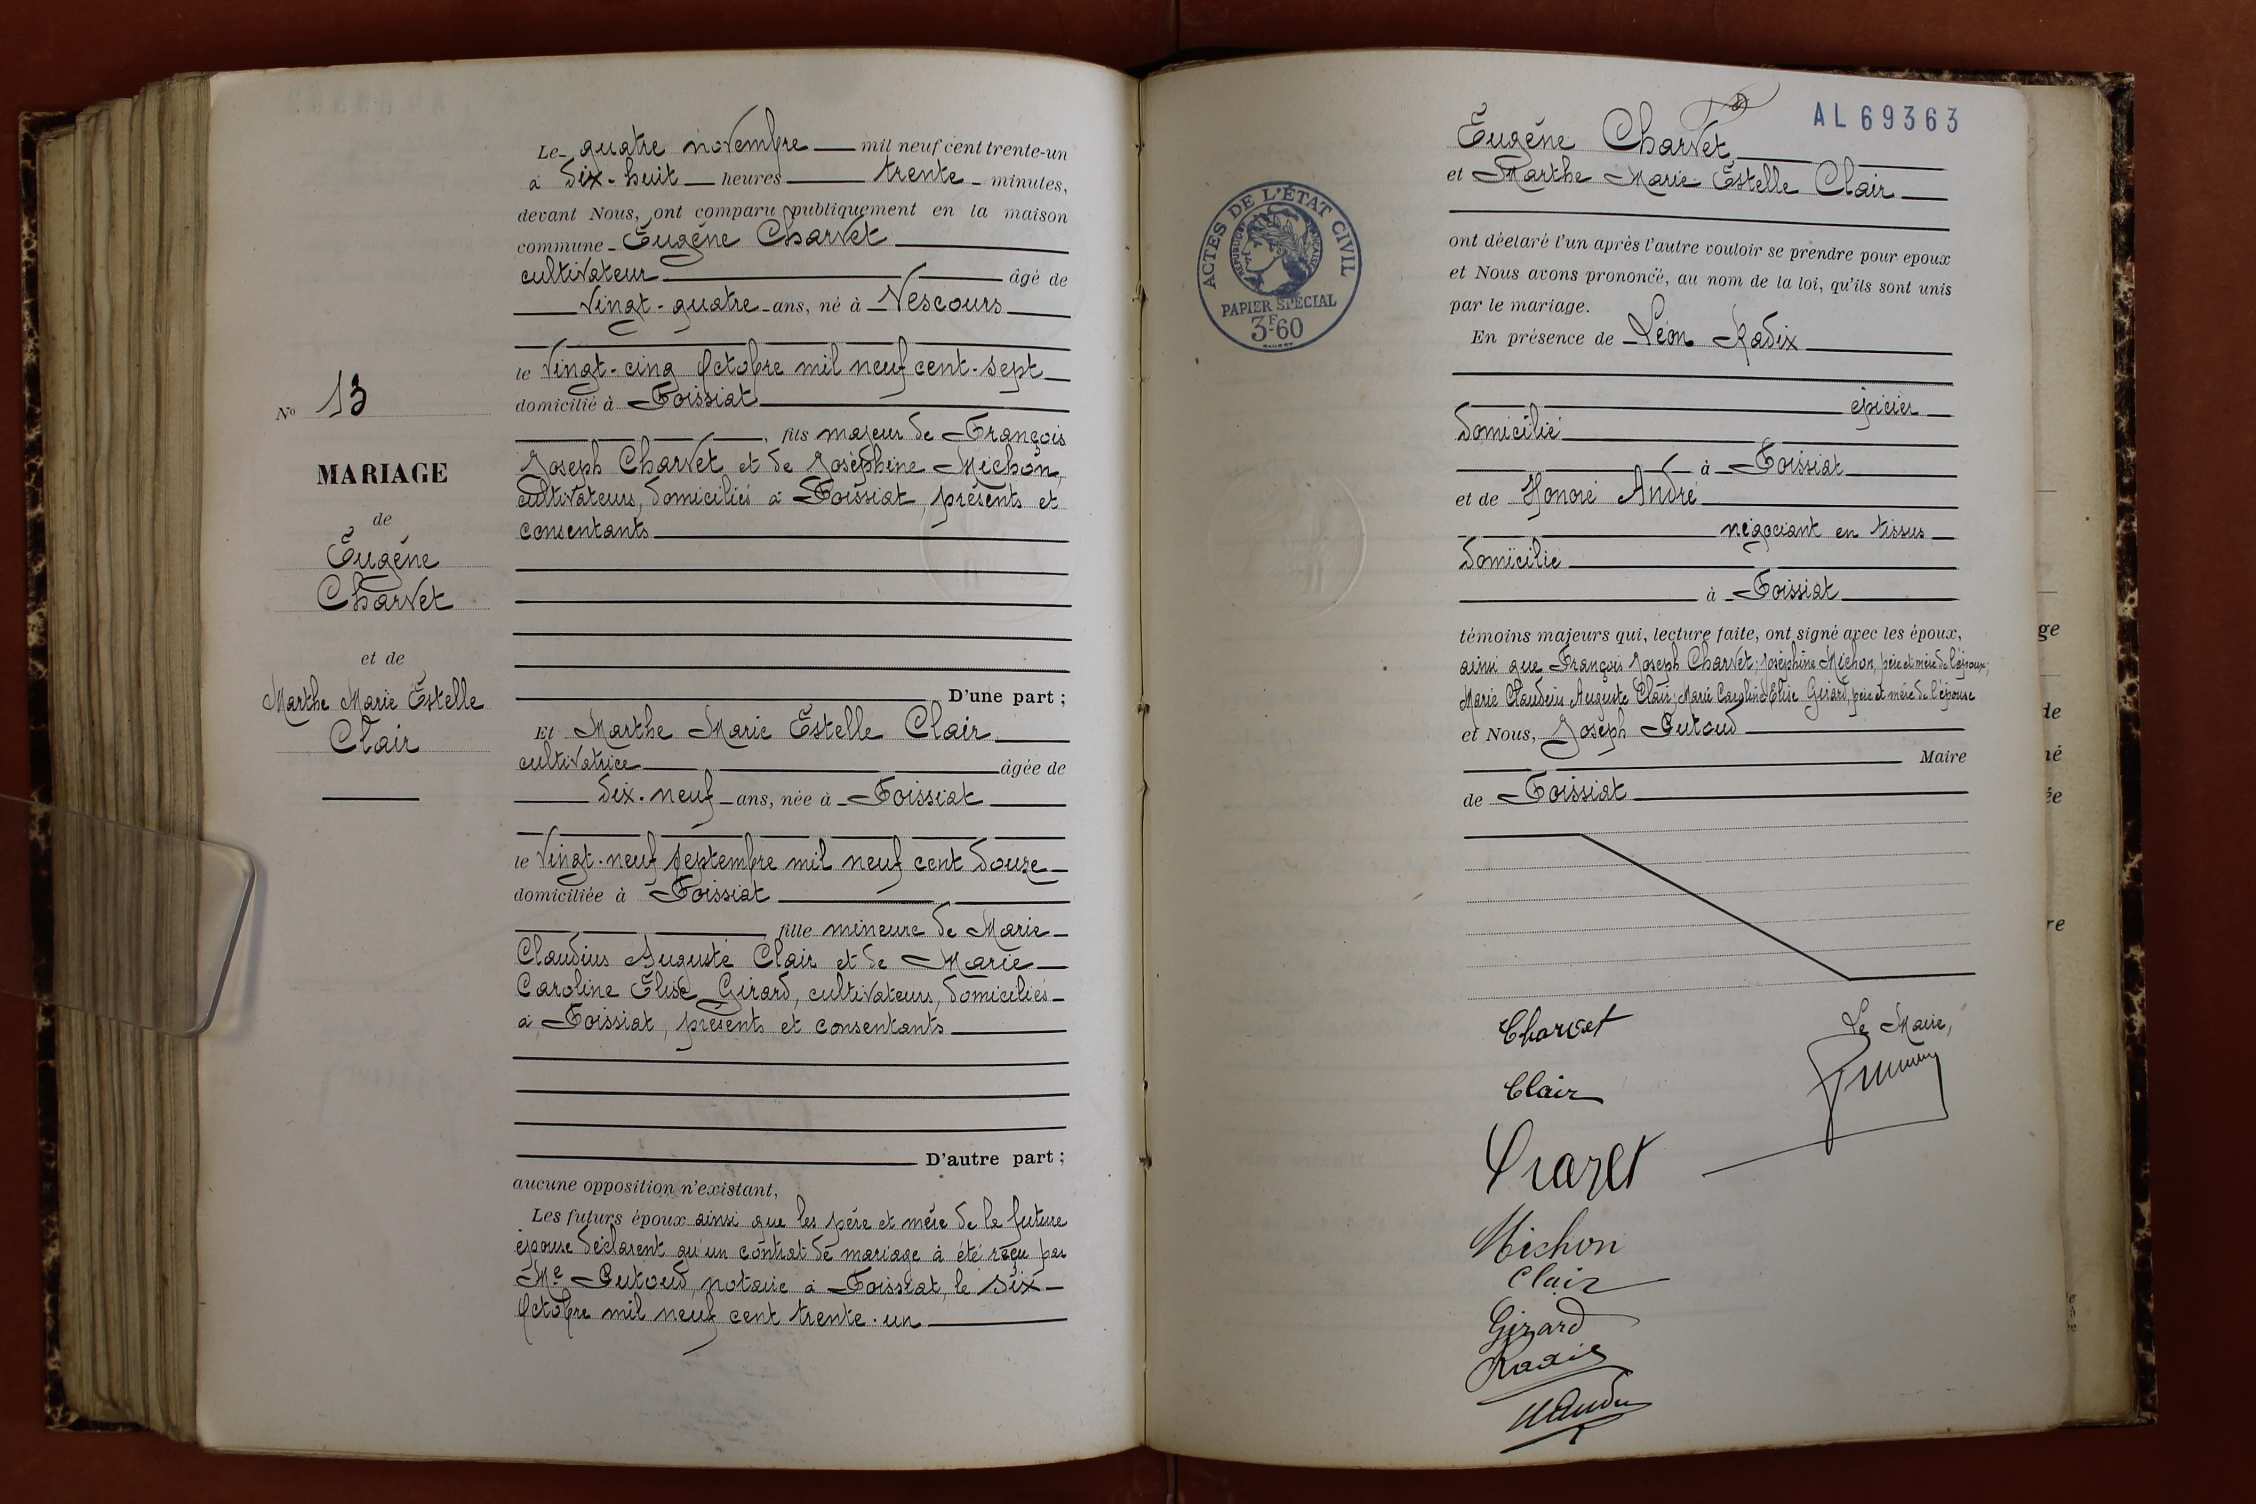 Le quatre novembre mil neuf cent trente-un
à dix-huit heures trente minutes,
devant Nous, ont comparu publiquement en la maison
commune Eugène Charvet
cultivateur âgé de
vingt-quatre ans, né à Vescours
le vingt-cinq Octobre mil neuf cent-sept
domicilié à Foissiat
, fils majeur de François
Joseph Charvet et de Joséphine Michon,
cultivateurs, domiciliés à Foissiat, présents et
consentants
D'une part ;
Et Marthe Marie Estelle Clair
cultivatrice âgée de
dix-neuf ans, née à Foissiat
le vingt-neuf septembre mil neuf cent douze
domiciliée à Foissiat
, fille mineure de Marie
Claudius Auguste Clair et de Marie
Caroline Elise Girard, cultivateurs, domiciliés
à Foissiat, présents et consentants
D'autre part ;
aucune opposition n'existant,
Les futurs époux ainsi que les père et mère de la future
épouse déclarent qu'un contrat de mariage à été reçu par
Me Gutoud, notaire à Foissiat, le six
Octobre mil neuf cent trente-un
No 13
MARIAGE
de
Eugène
Charvet
et de
Marthe Marie Estelle
Clair
AL 69363
Eugène Charvet
et Marthe Marie Estelle Clair
ont déclaré l'un après l'autre vouloir se prendre pour epoux
et Nous avons prononcé, au nom de la loi, qu'ils sont unis
par le mariage.
En présence de Léon Radix
épicier
domicilié
à Foissiat
et de Honoré André
négociant en tissus
domicilié
à Foissiat
témoins majeurs qui, lecture faite, ont signé avec les époux,
ainsi que François Joseph Charvet; Joséphine Michon, père et mère de l'époux;
Marie Claudius Auguste Clair; Marie Caroline Elise Girard, père et mère de l'épouse
et Nous, Joseph Gutoud
Maire
de Foissiat
ACTES DE L'ÉTAT CIVIL
RÉPUBLIQUE FRANÇAISE
PAPIER SPÉCIAL
3F60
Charvet
Le Maire,
Clair
Michon
Clair
Girard
Radix
ge
de
né
ée
re